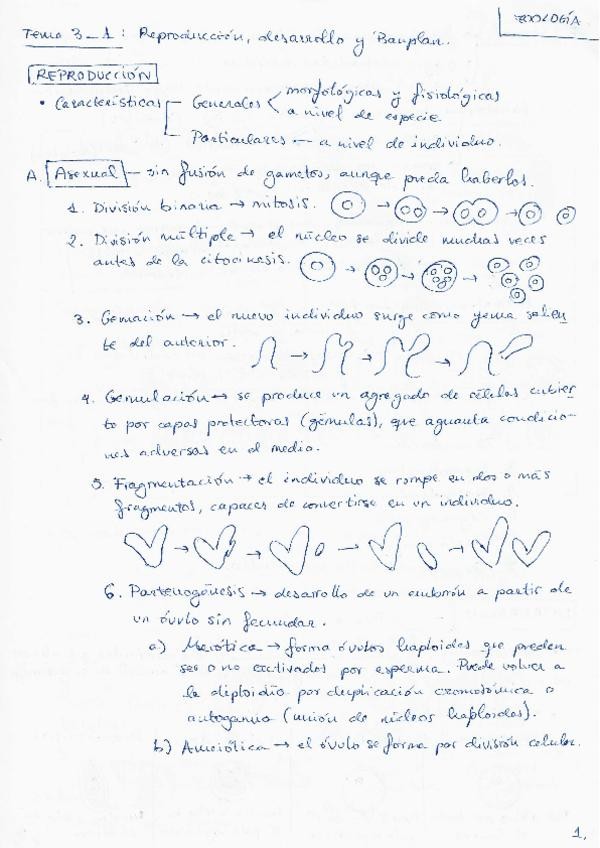 ZOOLOGÍA
Tema 3-1: Reproducción, desarrollo y Bauplan.
REPRODUCCIÓN
• Características Generales morfológicas y fisiológicas
a nivel de especie.
Particulares — a nivel de individuo.
A. Asexual — sin fusión de gametos, aunque pueda haberlos.
1. División binaria → mitosis.
2. División múltiple → el núcleo se divide muchas veces
antes de la citocinesis.
3. Gemación → el nuevo individuo surge como yema salien
te del anterior.
4. Gemulación → se produce un agregado de células cubier
to por capas protectoras (gémulas), que aguanta condicio-
nes adversas en el medio.
5. Fragmentación → el individuo se rompe en dos o más
fragmentos, capaces de convertirse en un individuo.
6. Partenogénesis → desarrollo de un embrión a partir de
un óvulo sin fecundar.
a) Meiótica → forma óvulos haploides que pueden
ser o no activados por esperma. Puede volver a
la diploidia por duplicación cromosómica o
autogamia (unión de núcleos haploides).
b) Ameiótica → el óvulo se forma por división celular.
1.